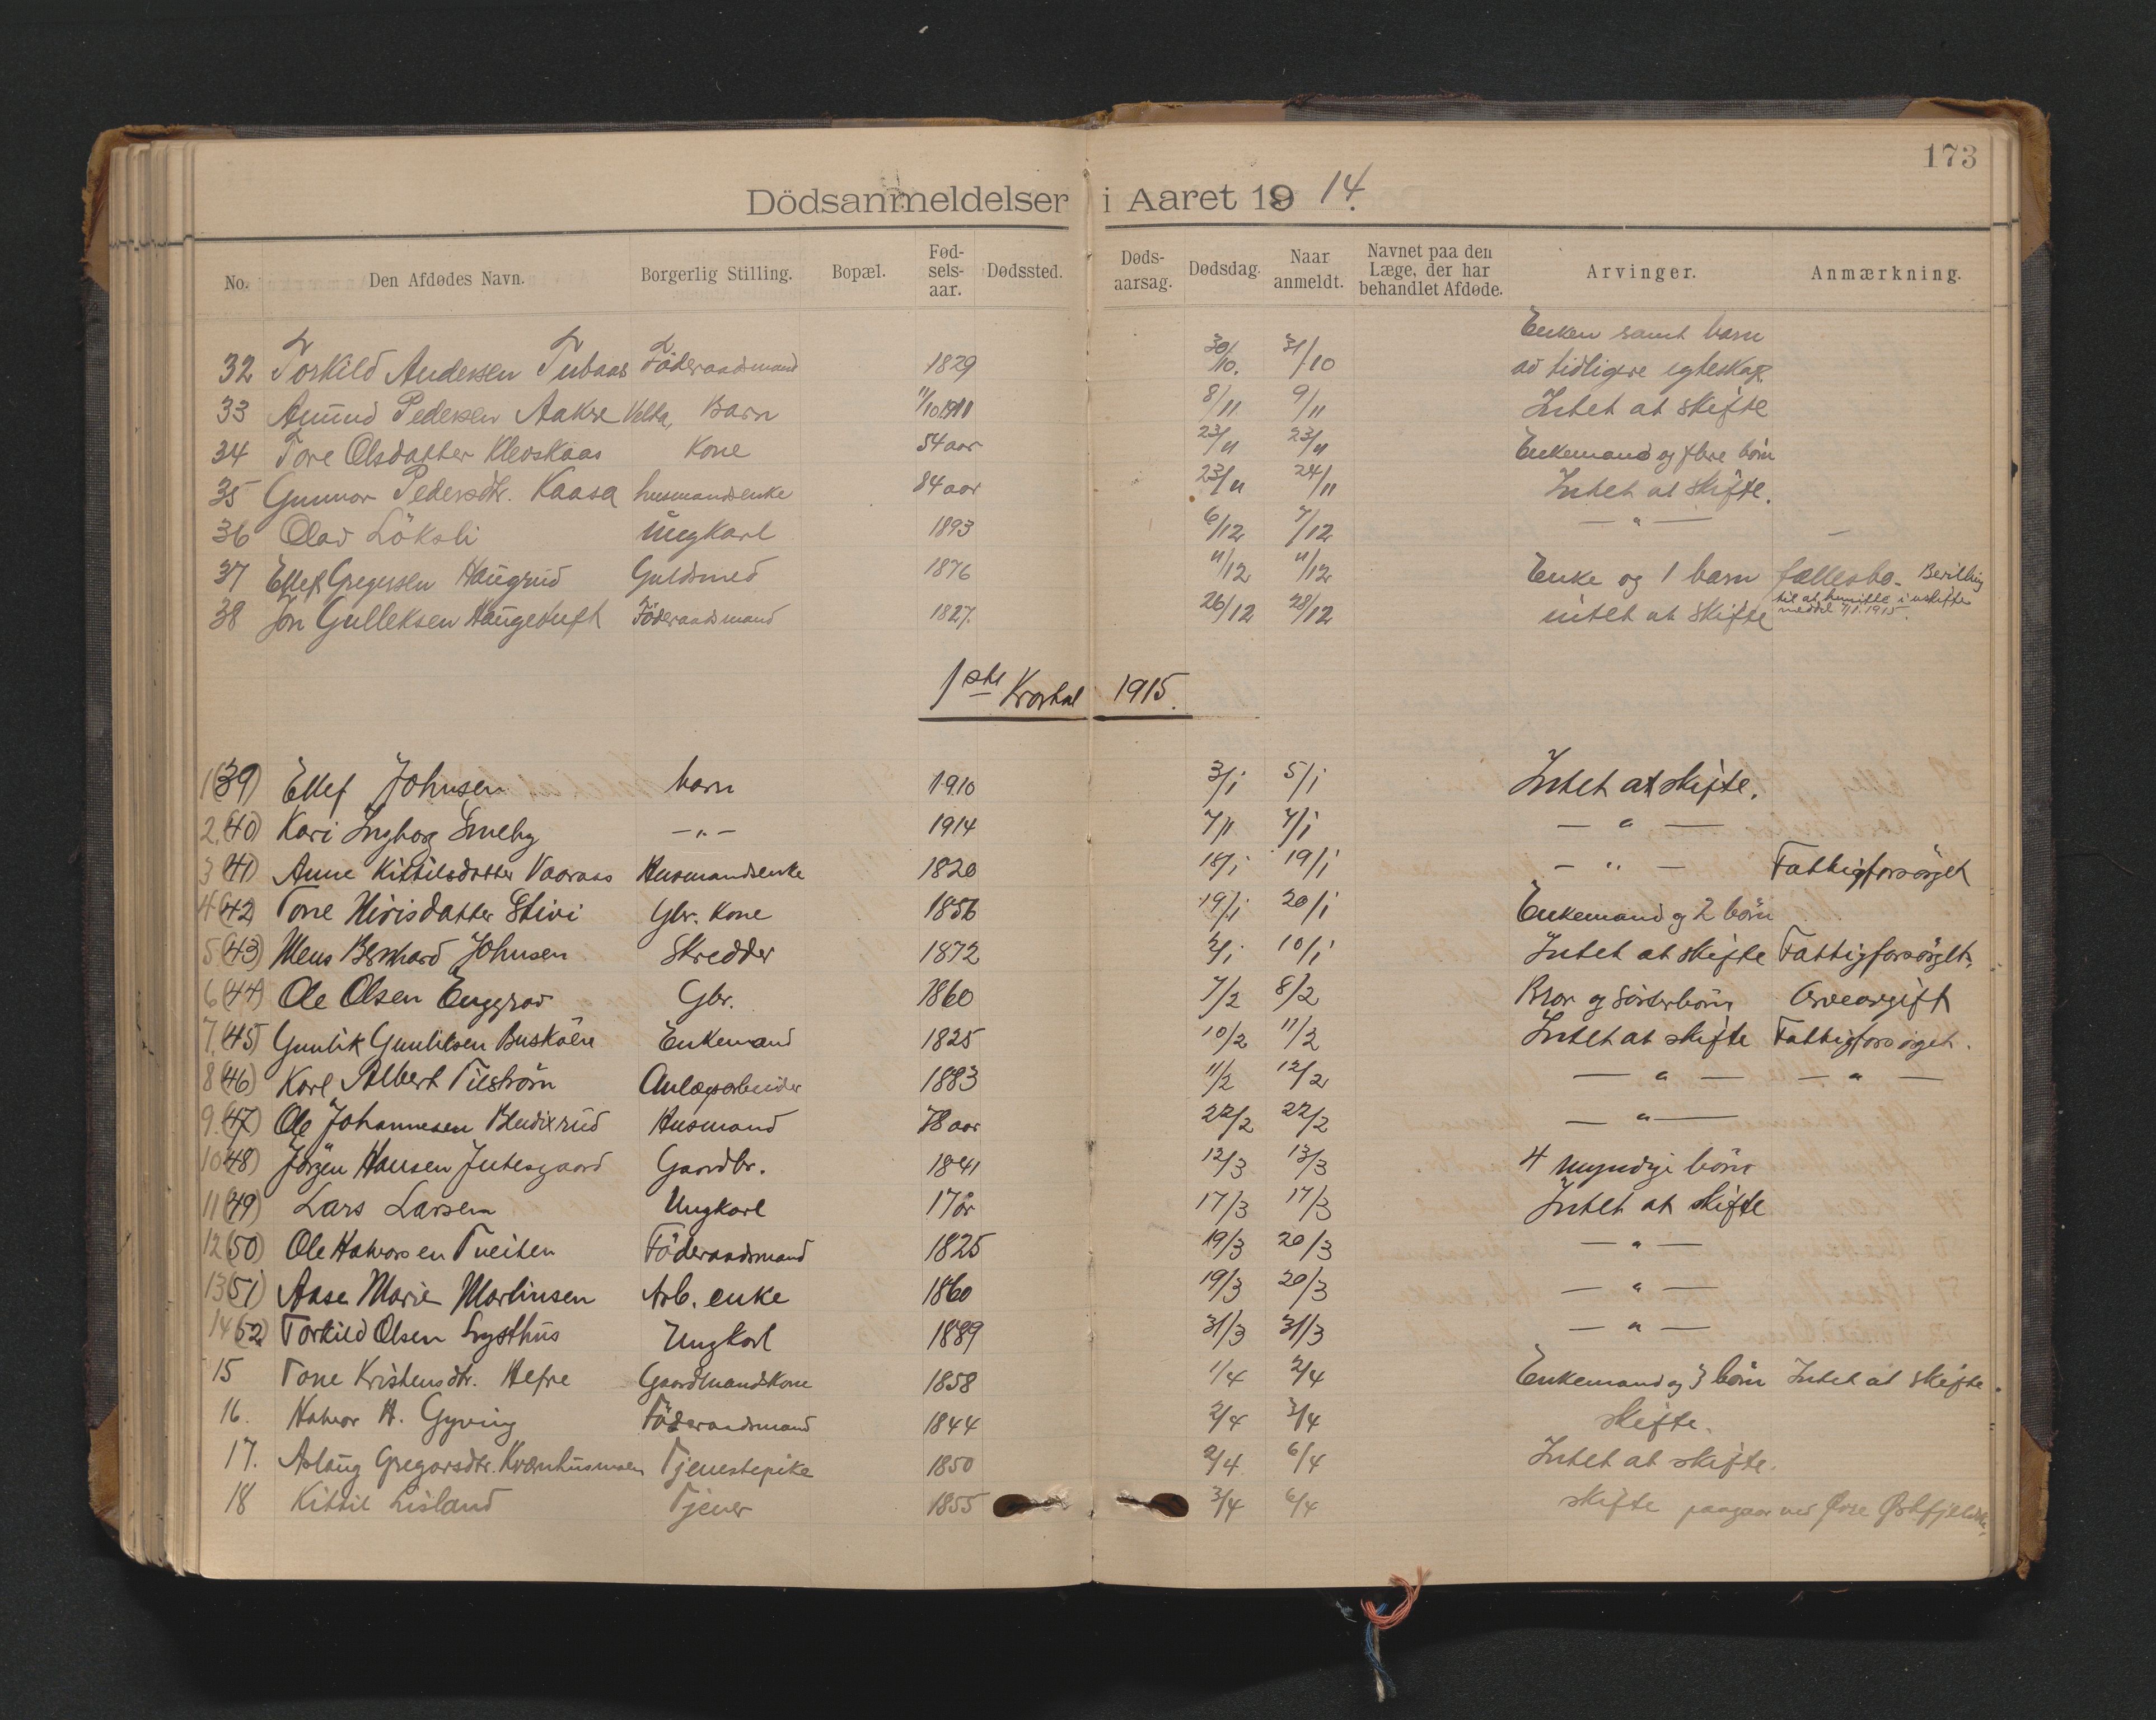 173
Dödsanmeldelser i Aaret 1914.
No. Den Afdødes Navn. Borgerlig Stilling. Bopæl. Fød-selsaar. Dødssted. Døds-aarsag. Dødsdag. Naar anmeldt. Navnet paa den Læge, der har behandlet Afdøde. Arvinger. Anmærkning.
Enken samt barn
32 Torkild Andersen Tubaas Föderaadsmand 1829 30/10. 31/10 av tidligere egteskap.
33 Amund Pedersen Aakre Barn 11/10 1911 8/11 9/11 Intet at skifte
34 Tore Olsdatter Klevskaas Kone 54 aar 23/11 23/11 Enkemand og flere börn
35 Gunnor Pedersdtr. Kaasa husmandsenke 84 aar 23/11 24/11 Intet at skifte.
36 Olav Löksli Ungkarl 1893 6/12 7/12 — " —
37 Ellef Gregersen Haugrud Guldsmed 1876 11/12 11/12 Enke og 1 barn fællesbo. Bevilling
til at hensitte i uskifte
38 Jon Gulleksen Haugetuft Föderaadsmand 1827. 26/12 28/12 intet at skifte meddel 7/1. 1915.
1ste Kvartal 1915.
1 (39) Ellef Johnsen barn 1910 3/1 5/1 Intet at skifte.
2. (40) Kari Ingborg Smeby — " — 1914 7/1 7/1 — " —
3 (41) Anne Kittilsdatter Vaaraas Husmandsenke 1820 18/1 19/1 — " — Fattigforsörget
4 (42) Tone Nirisdatter Stivi Gbr. Kone 1856 19/1 20/1 Enkemand og 2 börn
5 (43) Mens Bernhard Johnsen Skredder 1872 10/1 Intet at skifte Fattigforsörget.
6 (44) Ole Olsen Enggrav Gbr. 1860 7/2 8/2 Bror og Sösterbörn Arveavgift
7. (45) Gunlik Gunliksen Buskåen Enkemand 1825 10/2 11/2 Intet at skifte Fattigforsörget.
8 (46) Karl Albert Anlægsarbeider 1883 11/2 12/2 — " — — " —
9. (47) Ole Johannesen Bendixrud Husmand 78 aar 22/2 22/2 — " —
10 (48) Jörgen Hansen Jutesgaard Gaardbr. 1841 12/3 13/3 4 myndige börn
11 (49) Lars Larsen Ungkarl 17 år 17/3 17/3 Intet at skifte
12 (50) Ole Halvorsen Tveiten Föderaadsmand 1825 19/3 20/3 — " —
13 (51) Aase Marie Martinsen Arb. enke 1860 19/3 20/3 — " —
14 (52) Torkild Olsen Lysthus Ungkarl 1889 31/3 31/3 — " —
15 Tone Kristensdtr. Hefre Gaardmandskone 1858 1/4 2/4 Enkemand og 3 börn Intet at skifte.
16. Halvor H. Gyving Föderaadsmand 1844 2/4 3/4 skifte.
17. Aslaug Gregarsdtr. Kvernhusmoen Tjenestepike 1850 2/4 6/4 Intet at skifte.
18 Kittil Lisland Tjener 1855 3/4 6/4 skifte paagaar ved Øvre